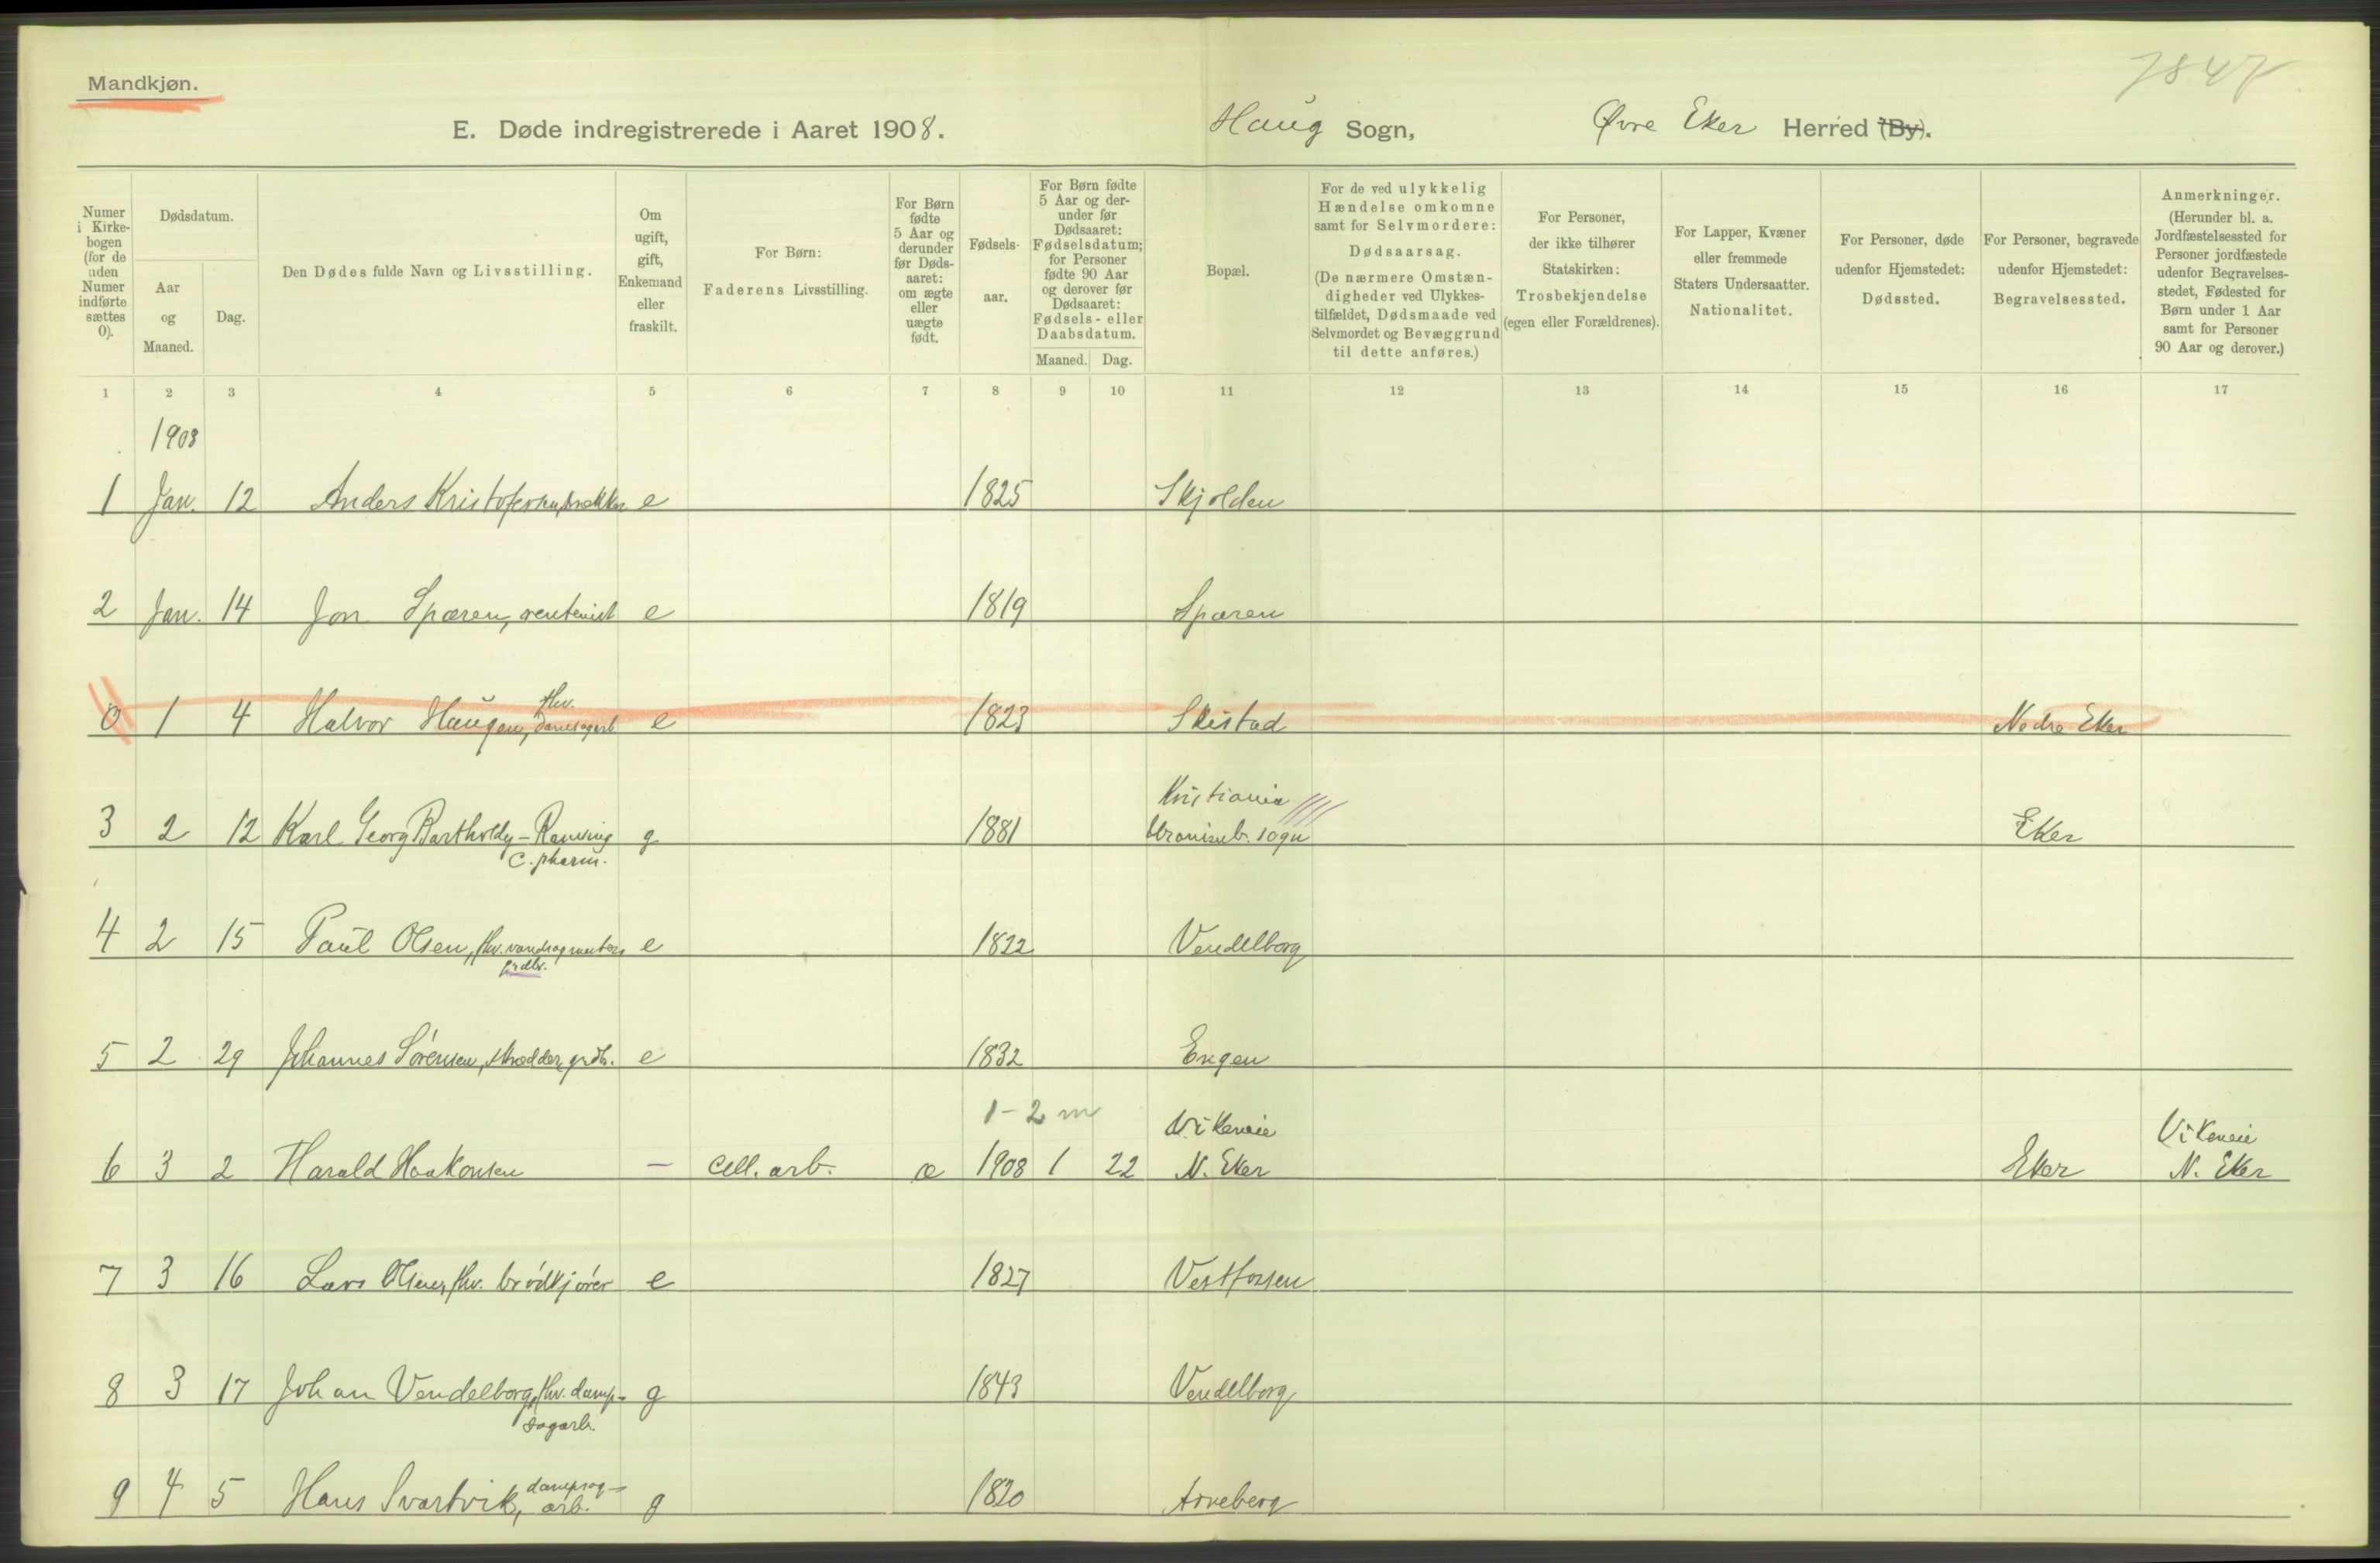 Mandkjøn.
7847
E. Døde indregistrerede i Aaret 1908.
Haug Sogn,
Øvre Eker Herred (By).
Numer i Kirkebogen (for de uden Numer indførte sættes 0).
Dødsdatum.
Aar og Maaned.
Dag.
Den Dødes fulde Navn og Livsstilling.
Om ugift, gift, Enkemand eller fraskilt.
For Børn: Faderens Livsstilling.
For Børn fødte 5 Aar og derunder før Dødsaaret: om ægte eller uægte født.
Fødselsaar.
For Børn fødte 5 Aar og derunder før Dødsaaret: Fødselsdatum; for Personer fødte 90 Aar og derover før Dødsaaret: Fødsels- eller Daabsdatum.
Maaned.
Dag.
Bopæl.
For de ved ulykkelig Hændelse omkomne samt for Selvmordere: Dødsaarsag. (De nærmere Omstændigheder ved Ulykkestilfældet, Dødsmaade ved Selvmordet og Bevæggrund til dette anføres.)
For Personer, der ikke tilhører Statskirken: Trosbekjendelse (egen eller Forældrenes).
For Lapper, Kvæner eller fremmede Staters Undersaatter. Nationalitet.
For Personer, døde udenfor Hjemstedet: Dødssted.
For Personer, begravede udenfor Hjemstedet: Begravelsessted.
Anmerkninger. (Herunder bl. a. Jordfæstelsessted for Personer jordfæstede udenfor Begravelsesstedet, Fødested for Børn under 1 Aar samt for Personer 90 Aar og derover.)
1 2 3 4 5 6 7 8 9 10 11 12 13 14 15 16 17
1908
1 Jan. 12 Anders Kristofersen, e 1825 Skjolden
2 Jan. 14 Jon Sparen, rentenist e 1819 Sparen
fhv.
0 1 4 Halvor Haugen, dampsagarb. e 1823 Skistad Nedre Eker
Kristiania
3 2 12 Karl Georg Bartholdy- g 1881 Uranienb. sogn Eker
c. pharm.
4 2 15 Paul Olsen, fhv. e 1822 Vendelborg
grdbr.
5 2 29 Johannes Sørensen, skrædder, grdb. e 1832 Engen
1-2 m Vikeneie Vikeneie
6 3 2 Harald Haakonsen - cell. arb. æ 1908 1 22 N. Eker Eker N. Eker
7 3 16 Lars Olsen, fhv. brødkjører e 1827 Vestfossen
8 3 17 Johan Vendelborg, fhv. damp- g 1843 Vendelborg
sagarb.
dampsag-
9 4 5 Hans Svartvik, arb. g 1820 Arneberg